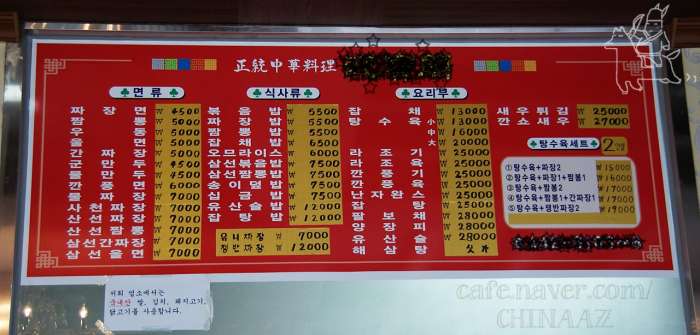 正統中華料理
면 류
짜장면 ₩4500
짬뽕 ₩5000
우동 ₩5000
울면 ₩5000
간짜장 ₩5000
군만두 ₩4500
물만두 ₩4500
깐풍면 ₩6000
물짜장 ₩7000
사천짜장 ₩7000
삼선짜장 ₩7000
삼선짬뽕 ₩7000
삼선간짜장 ₩7000
삼선울면 ₩7000
식사류
볶음밥 ₩5500
짜장밥 ₩5500
짬뽕밥 ₩5500
잡채밥 ₩6500
오므라이스 ₩6000
삼선볶음밥 ₩7500
삼선짬뽕밥 ₩7500
송이덮밥 ₩7500
잡탕밥 ₩12000
유니짜장 ₩7000
쟁반짜장 ₩12000
요리부
잡채 ₩13000
탕수육 소 ₩13000
중 ₩16000
대 ₩20000
라조기 ₩25000
라조육
깐풍기 ₩25000
깐풍육
난자완스 ₩25000
잡탕
팔보채 ₩28000
양장피
유산슬 ₩28000
해삼탕 싯가
새우튀김 ₩25000
깐쇼새우 ₩27000
탕수육세트 2인분
①탕수육+짜장2 ₩15000
②탕수육+짜장1+짬뽕1 ₩16000
③탕수육+짬뽕2 ₩17000
④탕수육+짬뽕1+간짜장1 ₩17000
⑤탕수육+쟁반짜장2 ₩19000
저희 업소에서는
국내산 쌀, 김치, 돼지고기,
닭고기를 사용합니다.
cafe.naver.com/
CHINAAZ